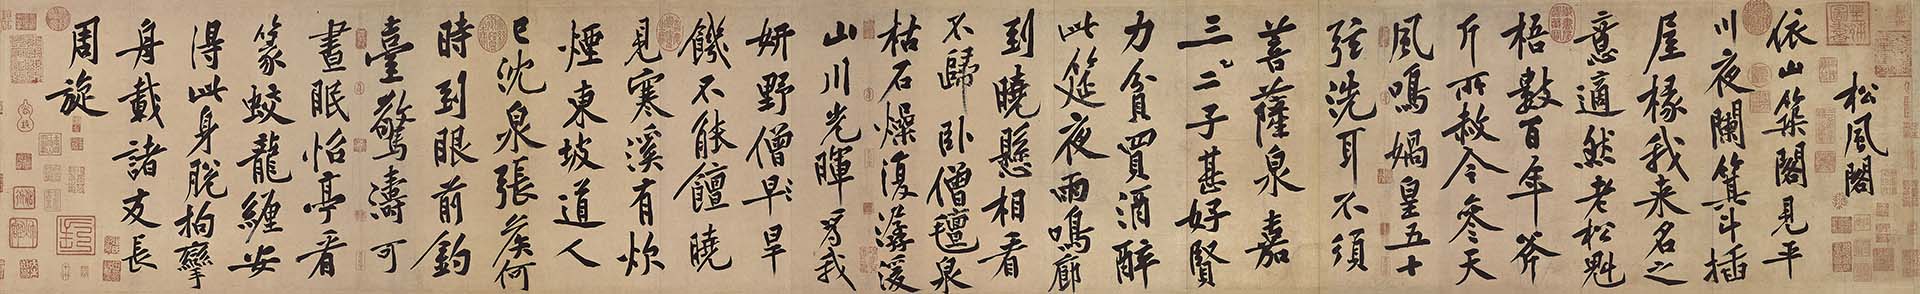 松風閣
依山築閣見平
川夜闌箕斗插
屋椽我来名之
意適然老松魁
梧數百年斧
斤所赦今參天
風鳴媧皇五十
弦洗耳不須
菩薩泉嘉
三二子甚好賢
力貧買酒醉
此筵夜雨鳴廊
到曉懸相看
不歸臥僧氈泉
枯石燥復潺湲
山川光暉為我
妍野僧早旱
饑不能饘曉
見寒溪有炊
煙東坡道人
已沈泉張侯何
時到眼前釣
臺驚濤可
晝眠怡亭看
篆蛟龍纏安
得此身脫拘攣
舟載諸友長
周旋